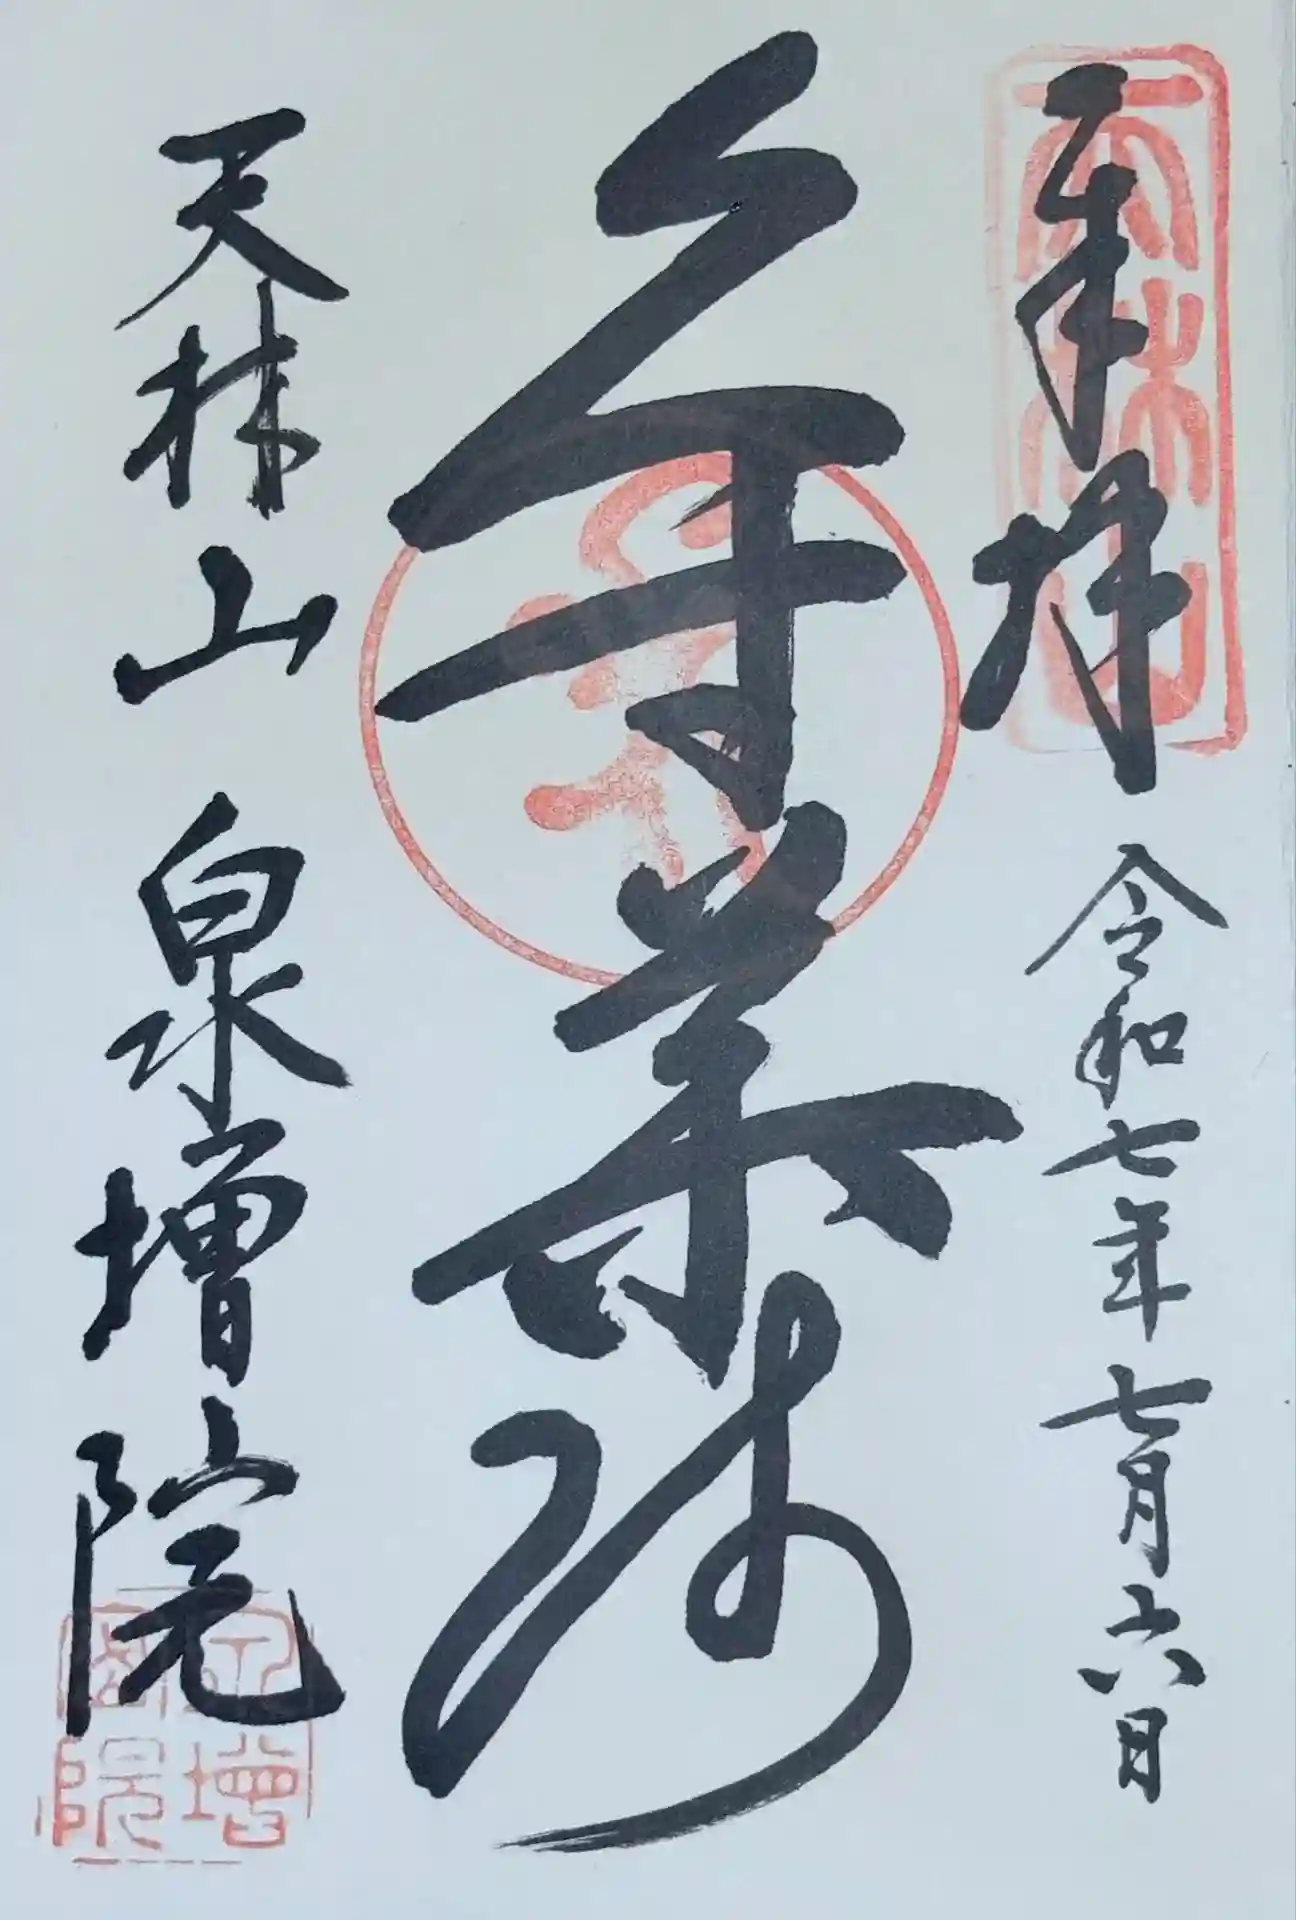 奉拝 令和七年七月六日
薬師
天林山 泉増院
天林山
増院